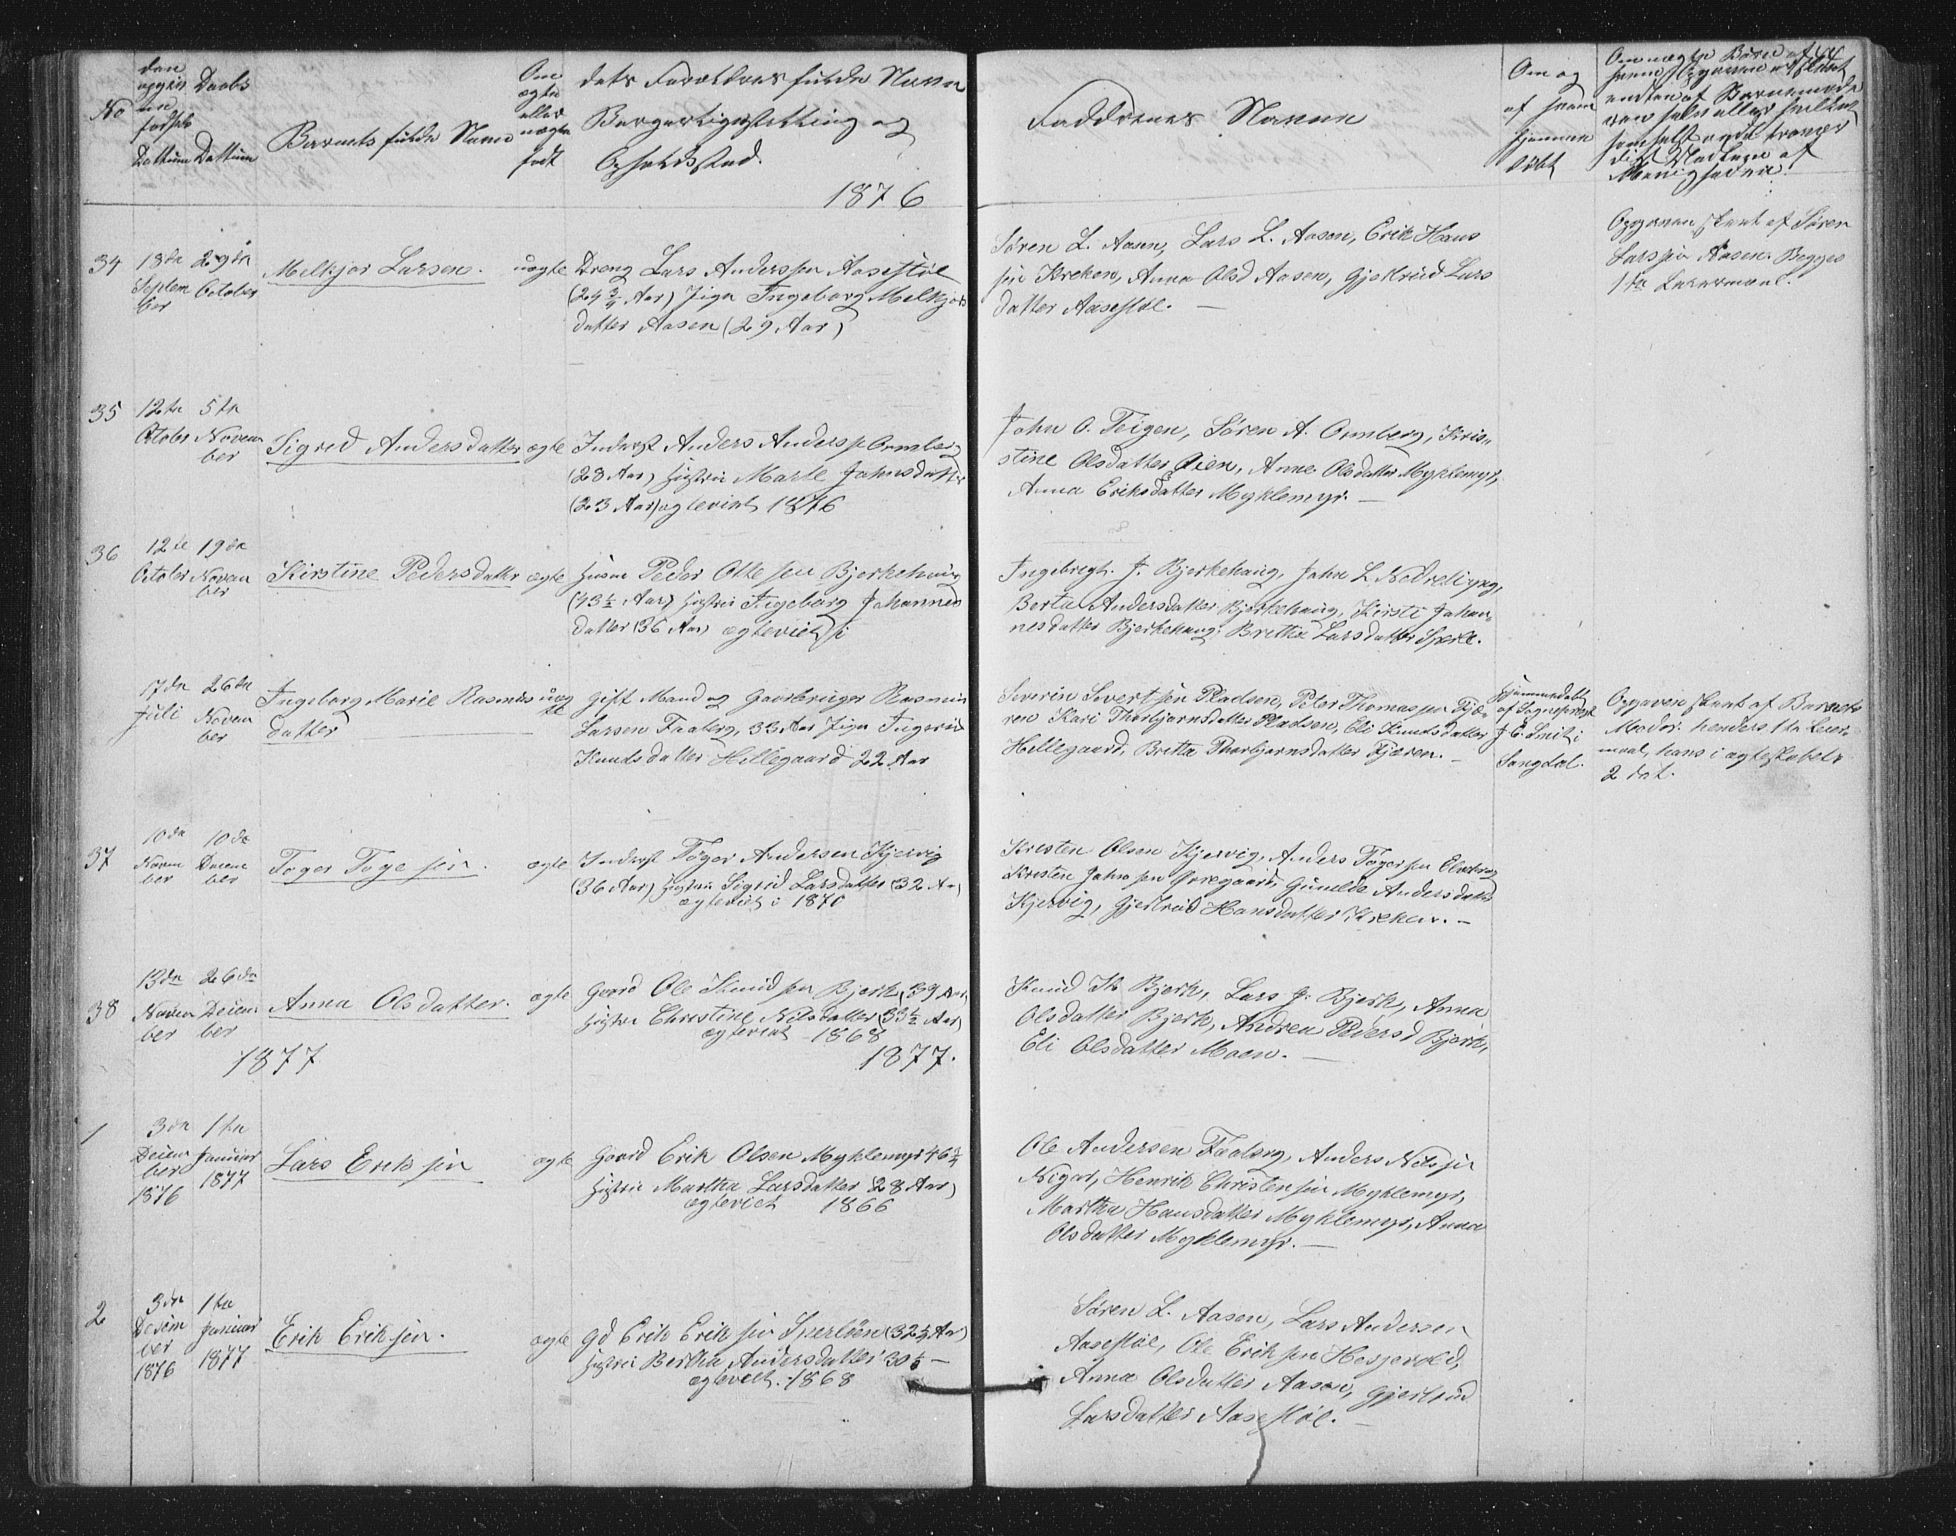 No
den opgivne fødsels Dattum
Daabs Dattum
Barnets fulde Navn
Om ægte eller uægte født
dets Forældres fulde Navn
Borgerlige stilling og
Opholdssted.
Faddrenes Navne
Om og af hvem hjemmedøbt
1876
34
18de September
29de October
Melkjor Larsen.
uægte
Dreng Lars Anderssen Aasestøl
(24 3/4 Aar) Pige Ingeborg Melkjors
datter Aasen (29 Aar)
Søren L. Aasen, Lars L. Aasen, Erik Hans
sen Kreken, Anna Olsd Aasen, Gjertrud Lars
datter Aasestøl. —
Opgaven skeet af Søren
Larssøn Aasen. Begges
1ste Leiermaal.
35
12te Octobr
5te November
Sigrid Andersdatter
ægte
Inderst Anders Anderss Ormberg
(28 Aar) Hustru Marte Johnsdatter
(23 Aar) ægteviet 1876
John O. Teigen, Søren A. Ormberg, Kris-
stine Olsdatter Øien, Anne Olsdatter Myklemyr,
Anna Eriksdatter Myklemyr. —
36
12te October
19de November
Kirstine Pedersdatter
ægte
Husm Peder Ottesen Bjerkehaug
(43 1/2 Aar) Hustru Ingeborg Johannes
datter (36 Aar) ægteviet i
Ingebregt. J. Bjerkehaug, John L. Nedrelyng,
Berta Andersdatter Bjerkehaug, Kirsti Johan-
nesdatter Bjerkehaug. Britha Larsdatter Sperle.
17de Juli
26de November
Ingeborg Marie Rasmus
datter
uægte
Gift Mand og Gaardbruger Rasmus
Larsen Faaberg, 33 Aar Pige Ingerid
Knudsdatter Hillegaard 22 Aar
Severin Sivertsen Pladsen, Peter Thomassen Fjæ-
ren Kari Thorbjørnsdatter Pladsen, Eli Knudsdatter
Hillegaard, Britta Thorbjørnsdatter Fjæren. —
Hjemmedøbt
af Sogneprest
Smit i
Sogndal.
Opgaven skeet af Barnets
Moder: hendes 1te Leier-
maal, hans i ægteskabet
2det.
37
10de November
10de December
Tøger Tøgesen.
ægte
Inderst Tøger Andersen Kjervig
(36 Aar) Hustru Sigrid Larsdatter (32 Aar)
ægteviet i 1870
Kristen Olsen Kjervig, Anders Tøgersen Elvekrog
Kristen Johnsen Øvregaard, Gunilde Andersdatter
Kjervig, Gjertrud Hansdatter Kreken. —
38
13de November
26de December
Anna Olsdatter.
ægte
Gaard Ole Knudsen Bjork (39 Aar)
Hustru Christine Nilsdatter (33 1/2 Aar)
ægteviet 1868
Knud Th Bjork, Lars J. Bjork, Anna
Olsdatter Bjork, Andrea Pedersd Bjørk,
Eli Olsdatter Moen. —
1877
1877.
1
3de December 1876
1te Januar 1877
Lars Eriksen
ægte
Gaard Erik Olsen Myklemyr 46 3/4
Hustru Martha Larsdatter 28 Aar)
ægteviet 1866
Ole Andersen Faaberg, Anders Nilssen
Nigar, Henrik Christensen Myklemyr,
Martha Hansdatter Myklemyr, Anna
Olsdatter Myklemyr. —
2
3de Desember 1876
1te Januar 1877
Erik Eriksen.
ægte
Gd Erik Eriksen Sperleøen (32 1/4 Aar)
Hustru Bertha Andersdatter 30 1/2 —
ægteviet. 1868
Søren L. Aasen, Lars Andersen
Aasestøl, Ole Eriksen Hesjevold,
Anna Olsdatter Aasen, Gjertrud
Larsdatter Aasestøl. —